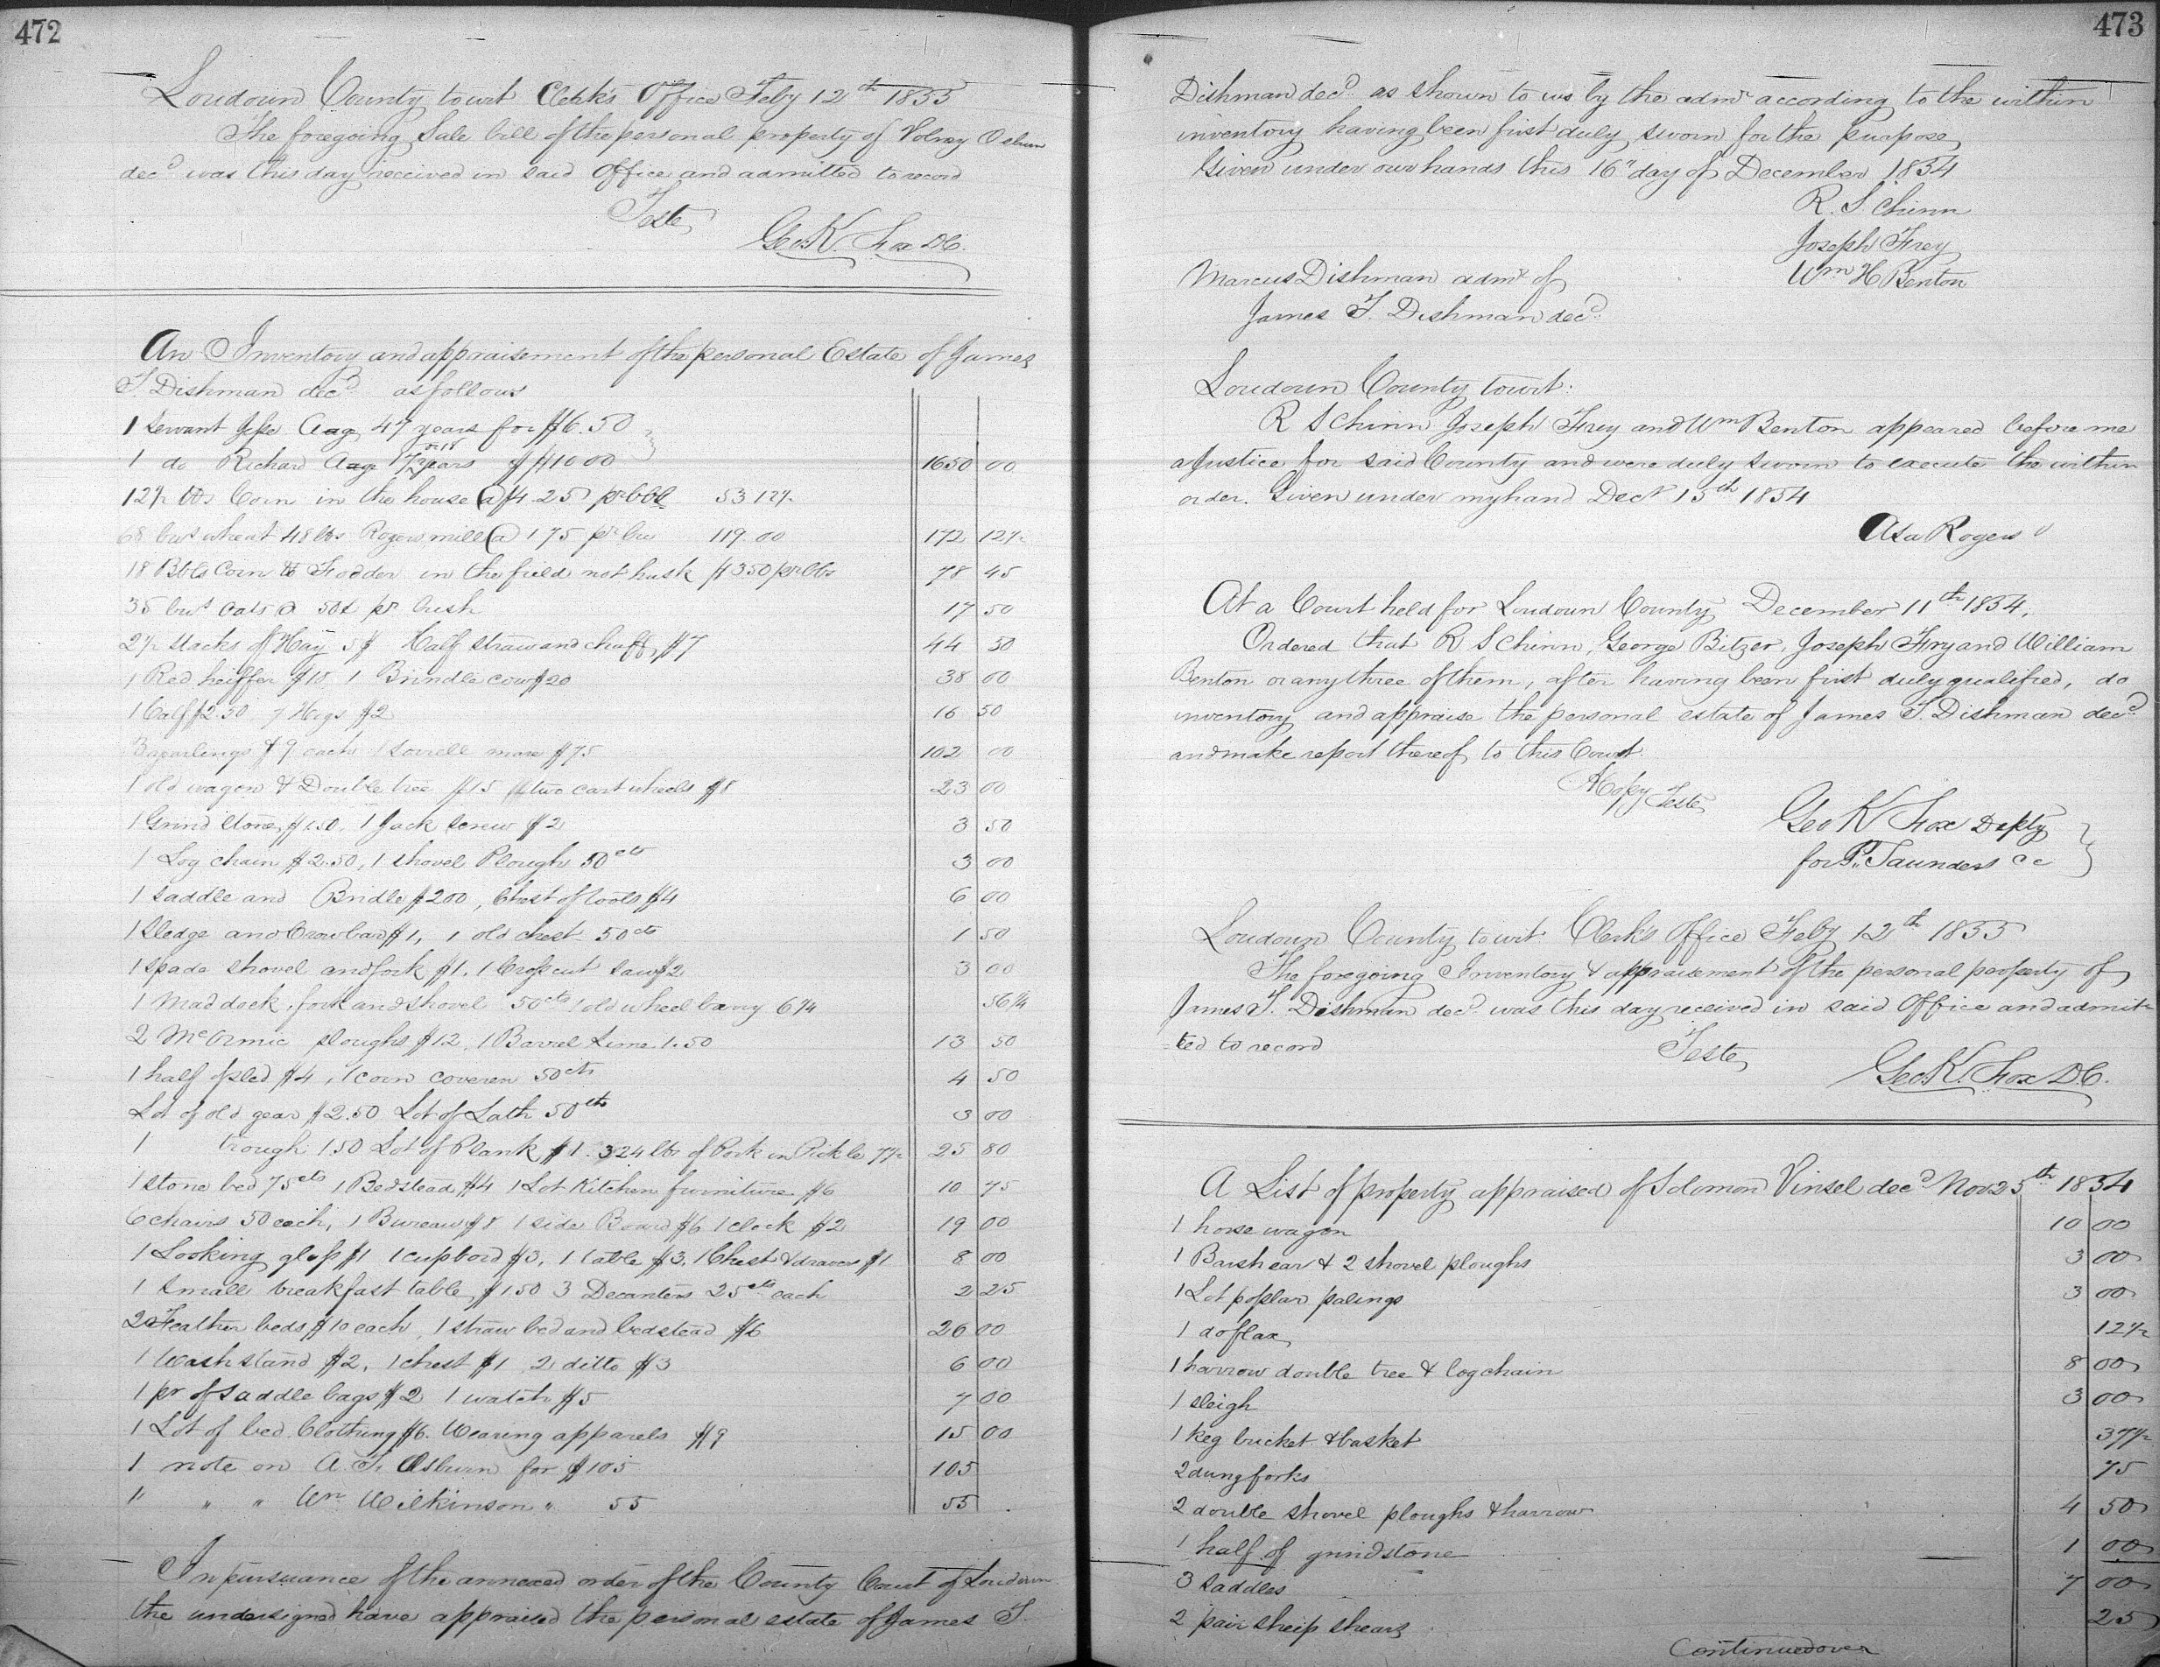 472
Loudoun County towit Clerk's Office Feby 12th 1855
The foregoing Sale bill of the personal property of Volney Osburn
decd was this day received in said Office and admitted to record
Teste
Geo. K. Fox D.C.
An Inventory and appraisement of the personal Estate of James
T. Dishman decd as follows
1 Servant Jesse Aag 47 years for $6.50
1 do Richard Aage 17 or 18 years $ $1000 1650 00
12½ bbs Corn in the house @ $4.25 pr bbl 53 12½
68 bus wheat 48 lbs Rogers mill @ 175 pr bu 119.00 172 12½
18 Bbls Corn & Fodder in the field not husk $3 50 pr bbs 78 45
35 bus Oats @ 50¢ pr bush 17 50
2½ stacks of Hay 5$ Half straw and chaff $7 44 50
1 Red heiffer $18 1 Brindle cow $20 38 00
1 Calf $2.50 7 Hogs $2 16 50
3 yearlings $9 each 1 sorrell mare $75 102 00
1 old wagon & Double tree $15 two cart wheels $8 23 00
1 Grind Stone $1.50, 1 Jack Screw $2 3 50
1 Log chain $2.50, 1 shovel Plough 50cts 3 00
1 saddle and Bridle $200, Chest of tools $4 6 00
1 Sledge and Crowbar $1, 1 old chest 50cts 1 50
1 spade shovel and fork $1, 1 Cross cut saw $2 3 00
1 Maddock, fork and shovel 50cts 1 old wheel barry 6¼ 56¼
2 McCrmic ploughs $12, 1 Barrel Lime 1.50 13 50
1 half sled $4, 1 corn coverer 50cts 4 50
Lot of old gear $2.50 Lot of Lath 50cts 3 00
1 trough 1.50 Lot of Plank $1 324 lbs of Pork in Pickle 7½ 25 80
1 stone bed 75cts 1 Bedstead $4 1 Lot Kitchen furniture $6 10 75
6 chairs 50 each, 1 Bureau $8 1 side Board $6 1 clock $2 19 00
1 Looking glass $1 1 cupbord $3, 1 table $3, 1 Chest & drawers $1 8 00
1 small breakfast table $150 3 Decanters 25cts each 2 25
2 Feather beds $10 each, 1 straw bed and bedstead $6 26 00
1 Wash stand $2, 1 chest $1 2 ditto $3 6 00
1 pr of saddle bags $2 1 watch $5 7 00
1 Lot of bed Clothing $6. Wearing apparels $9 15 00
1 note on A. T. Osburn for $105 105
1" " " Wm Wilkinson " 55 55
In pursuance of the annexed order of the County Court of Loudoun
the undersigned have appraised the personal estate of James T.
473
Dishman decd as shown to us by the admr according to the within
inventory having been first duly sworn for the purpose
Given under our hands this 16" day of December 1854
R. S. Chinn
Joseph Frey
Wm H Benton
Marcus Dishman admr of
James T. Dishman decd.
Loudoun County towit:
R S Chinn Joseph Frey and Wm Benton appeared before me
a Justice for said County and were duly sworn to execute the within
order. Given under my hand Decr 15th 1854
Asa Rogers
At a Court held for Loudoun County December 11th 1854,
Ordered that R S Chinn, George Bitzer, Joseph Fry and William
Benton or any three of them, after having been first duly qualified, do
inventory and appraise the personal estate of James T. Dishman decd
and make report thereof to this Court.
A Copy Teste
Geo K Fox Depty
for P. Saunders CC
Loudoun County towit Clerk's Office Feby 12th 1855
The foregoing Inventory & appraisement of the personal property of
James T. Dishman decd was this day received in said Office and admit-
-ted to record
Teste
Geo. K. Fox D.C.
A List of property appraised of Solomon Vinsel decd Nov 25th 1854
1 horse wagon 10 00
1 Barshear & 2 shovel ploughs 3 00
1 Lot poplar palings 3 00
1 do flax 12½
1 harrow double tree & log chain 8 00
1 sleigh 3 00
1 keg bucket & basket 37½
2 dung forks 75
2 double shovel ploughs & harrow 4 50
1 half of grindstone 1 00
3 Saddles 7 00
2 pair sheep shears 25
Continued over